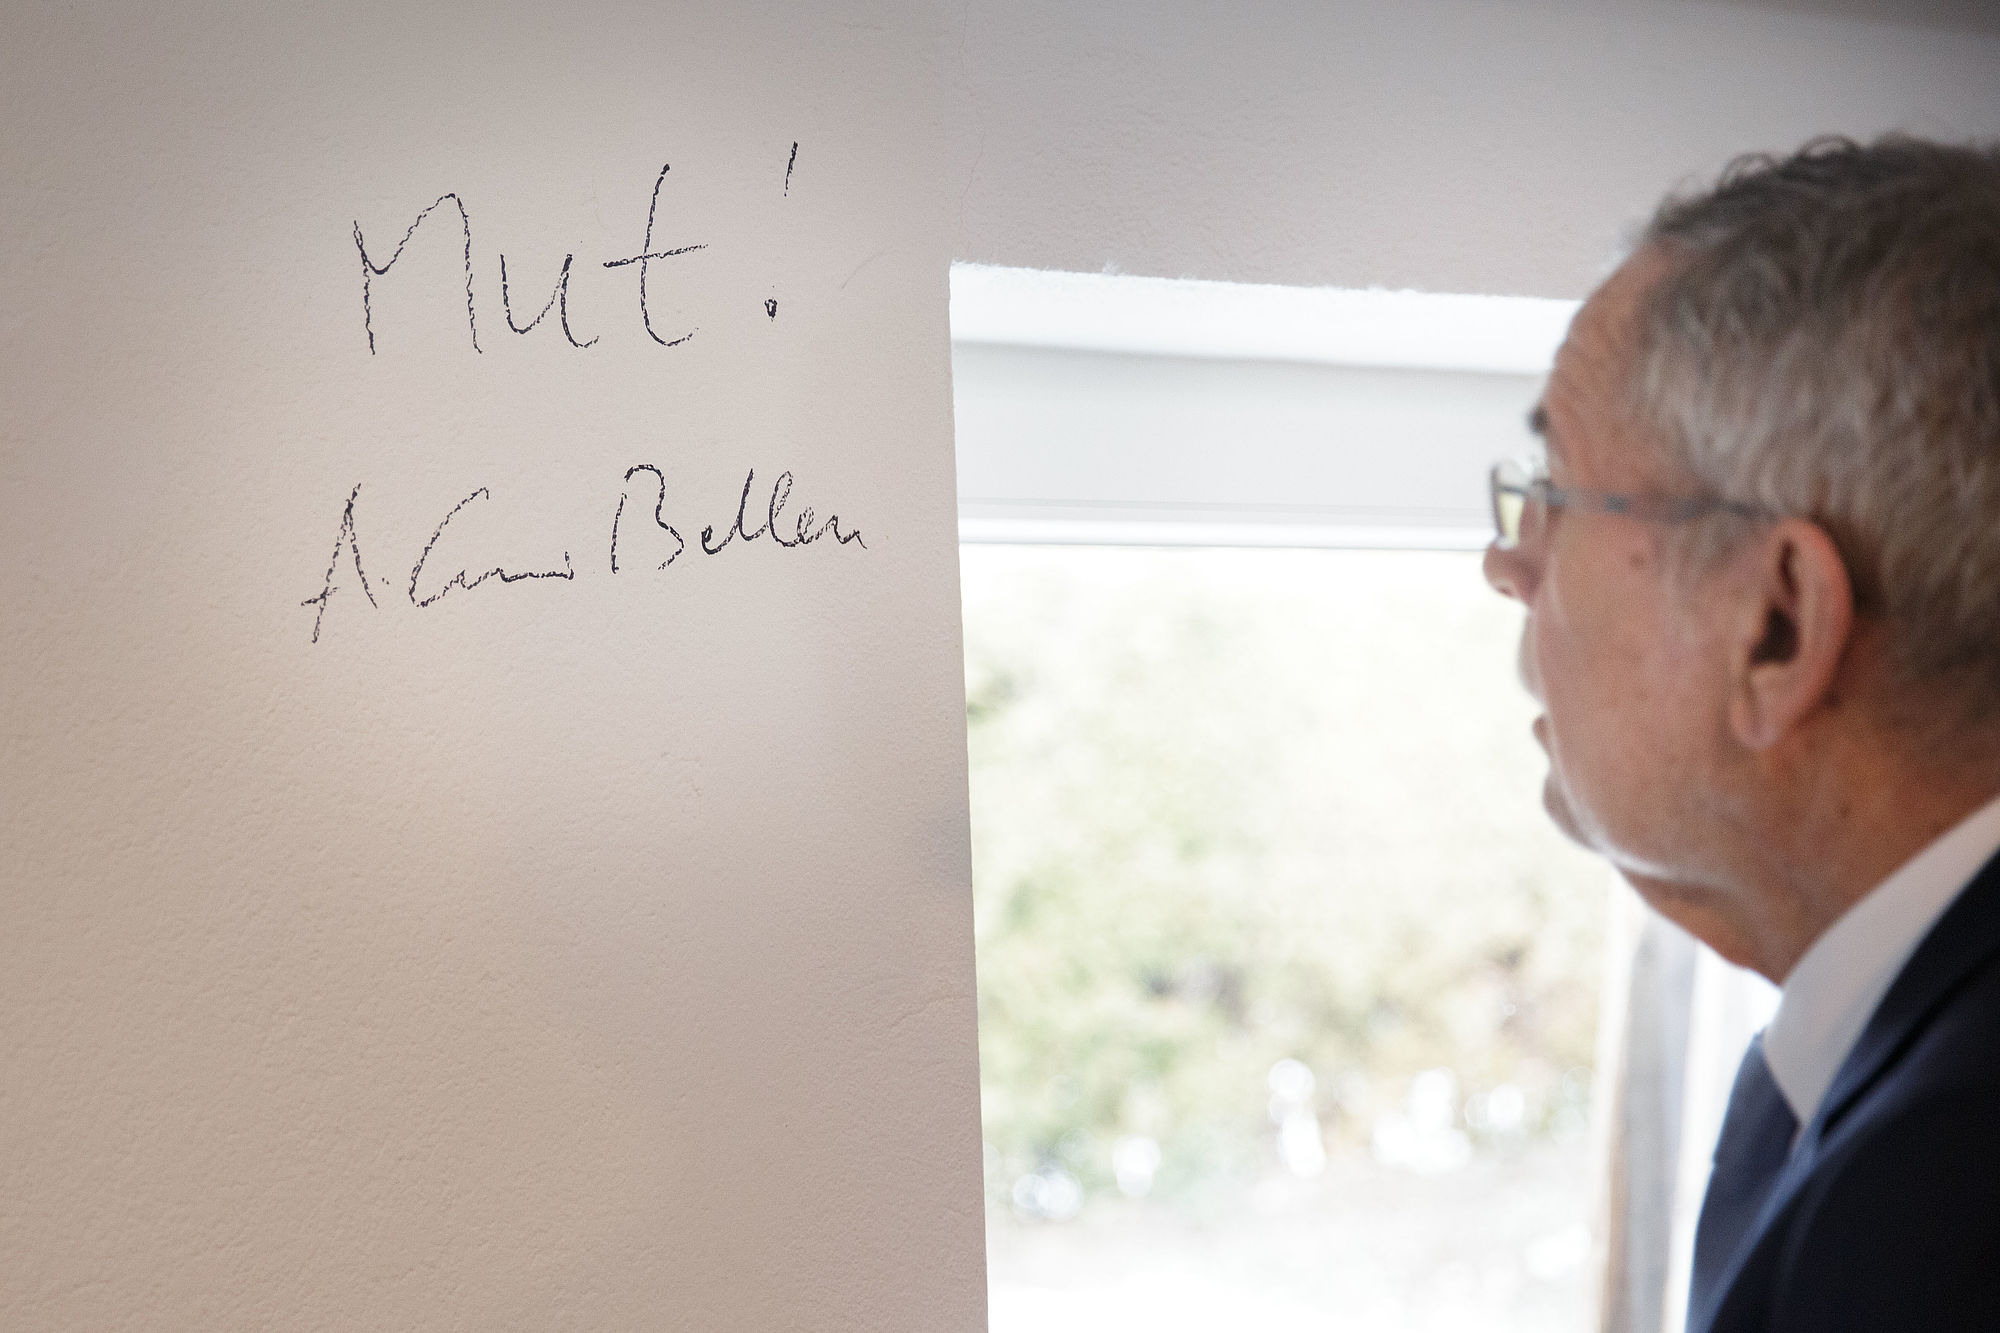 Mut!
A. Van der Bellen